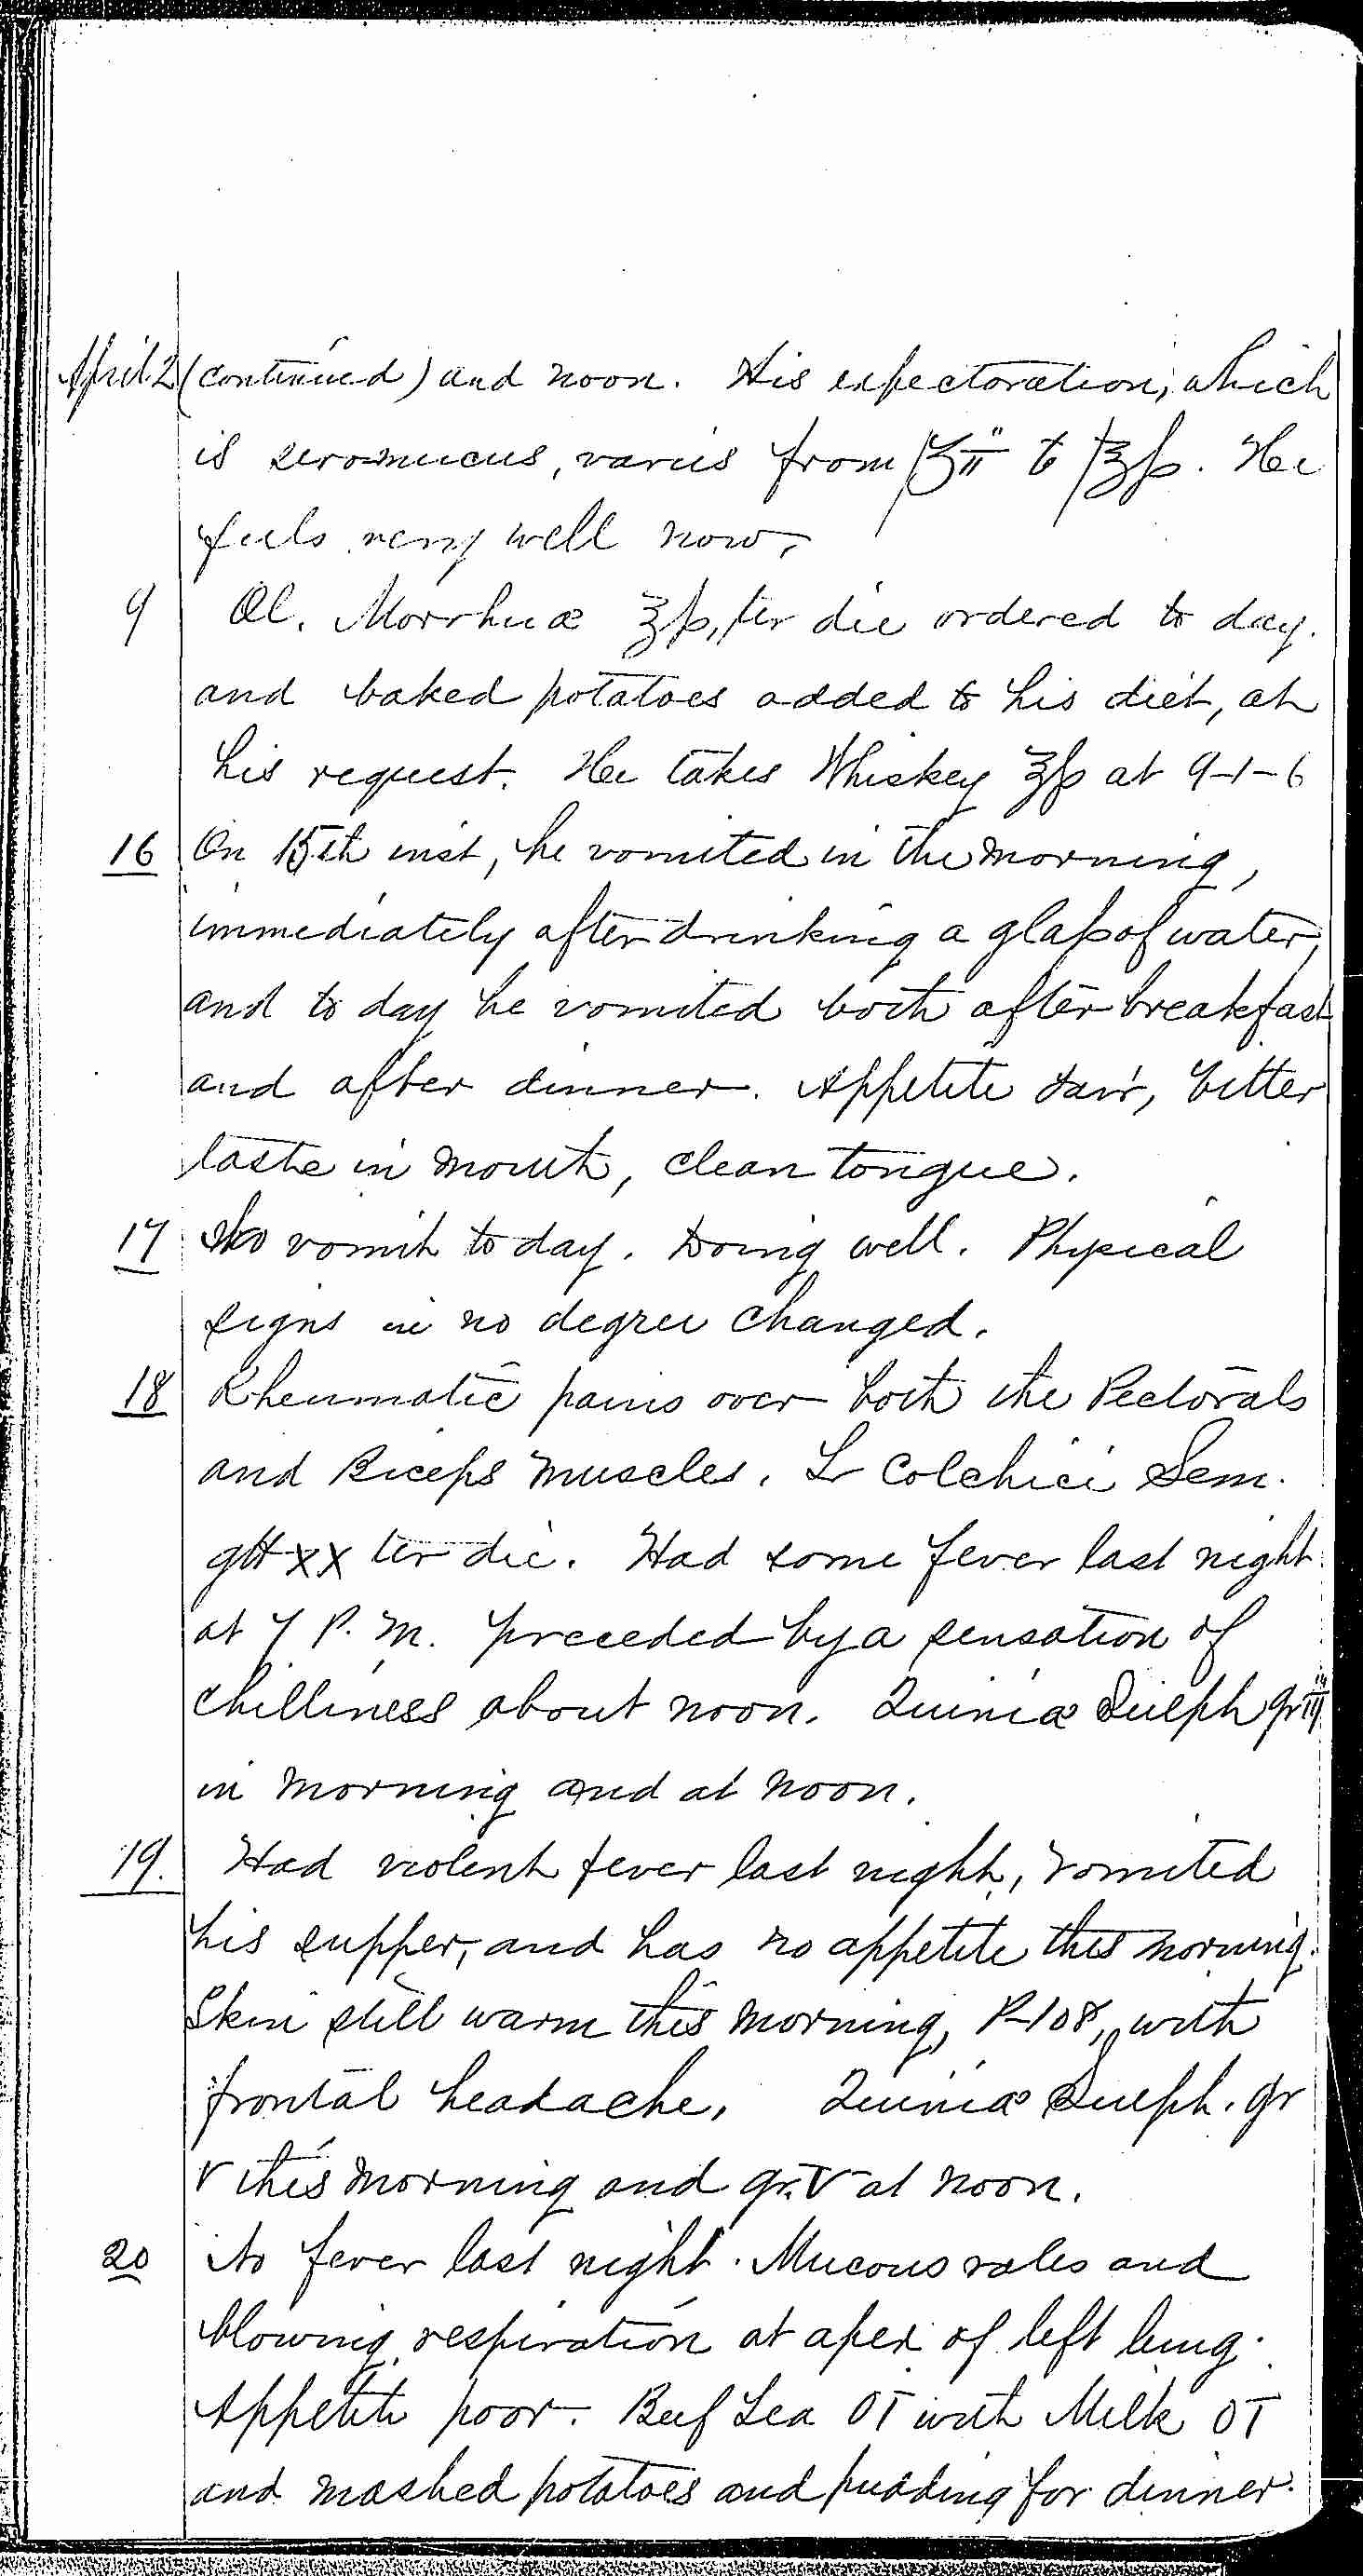 April 2 (continued) and noon. His expectoration, which
is seromucus, varies from ʒii to ℥ß. He
feels very well now,
9 Ol. Morrhuæ ℥ß, ter die ordered to day.
and baked potatoes added to his diet, at
his request. He takes Whiskey ℥ß at 9-1-6
16 On 15th inst, he vomited in the morning,
immediately after drinking a glaſs of water,
and to day he vomited both after breakfast
and after dinner. Appetite fair, bitter
taste in mouth, clean tongue.
17 No vomit to day. Doing well. Physical
signs in no degree changed.
18 Rheumatic pains over both the Pectorals
and Biceps muscles. Tr Colchici Sem.
gtt xx ter die. Had some fever last night
at 7 P. M. preceded by a sensation of
chilliness about noon. Quiniæ Sulph gr iij
in morning and at noon.
19. Had violent fever last night, vomited
his supper, and has no appetite this morning.
Skin still warm this morning, P-108, with
frontal headache, Quiniæ Sulph. gr
V this morning and gr. V at noon.
20 No fever last night. Mucous rales and
blowing respiration at apex of left lung.
Appetite poor. Beef Tea OI with Milk OI
and mashed potatoes and pudding for dinner.